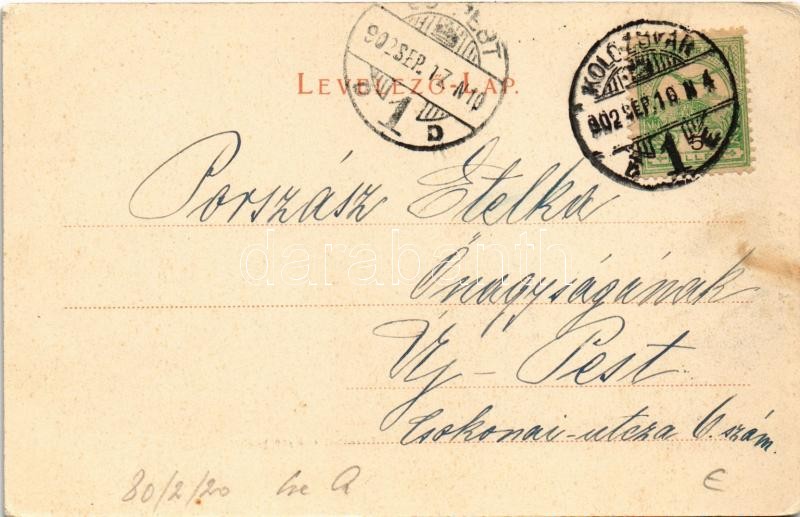 LEVELEZŐ-LAP.
902 SEP. 17. N 10
1
D
KOLOZSVÁR
902 SEP. 16 N 4
1
5
Porszász Etelka
darabanth
Őnagyságának
Uj-Pest
Csokonai-utcza 6. szám.
80/2/20